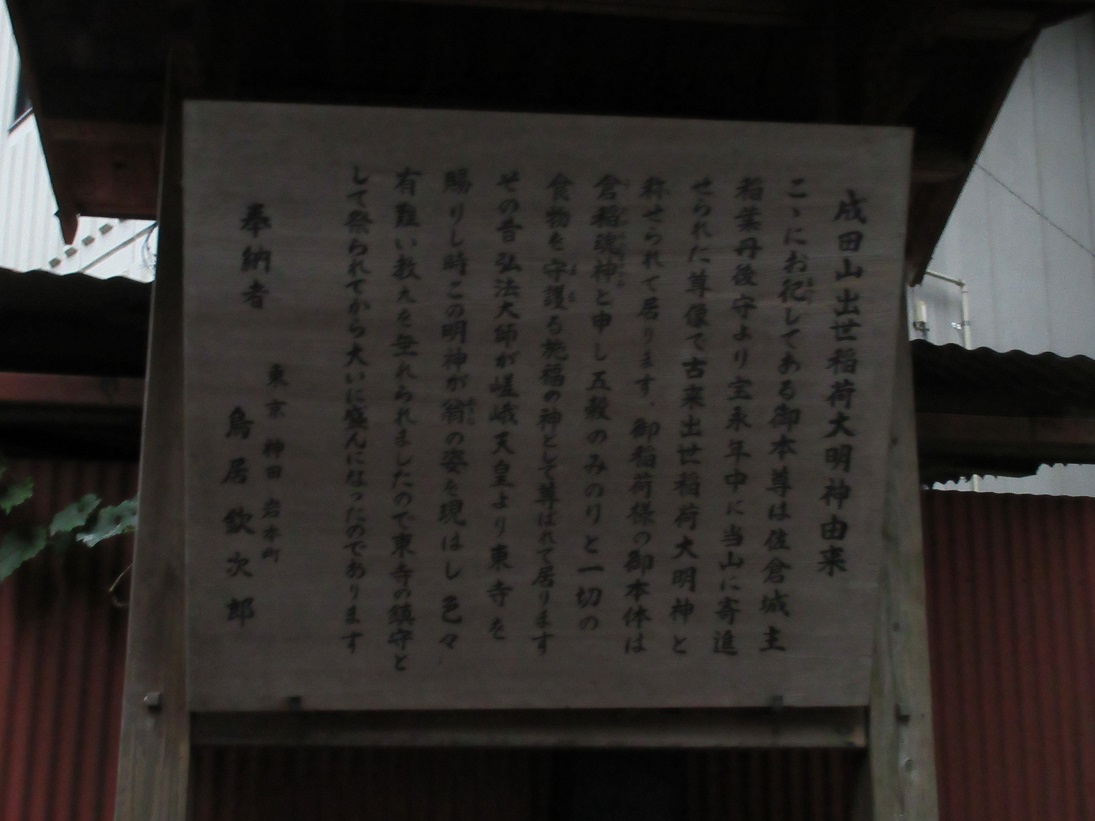 成田山出世稲荷大明神由来
こゝにお祀してある御本尊は佐倉城主
稲葉丹後守より宝永年中に当山に寄進
せられた尊像で古来出世稲荷大明神と
称せられて居ります。御稲荷様の御本体は
倉稲魂神と申し五穀のみのりと一切の
食物を守護る施福の神として尊ばれて居ります
その昔弘法大師が嵯峨天皇より東寺を
賜りし時この明神が翁の姿を現はし色々
有難い教えを垂れられましたので東寺の鎮守と
して祭られてから大いに盛んになったのであります
東京 神田 岩本町
奉納者 鳥居欽次郎